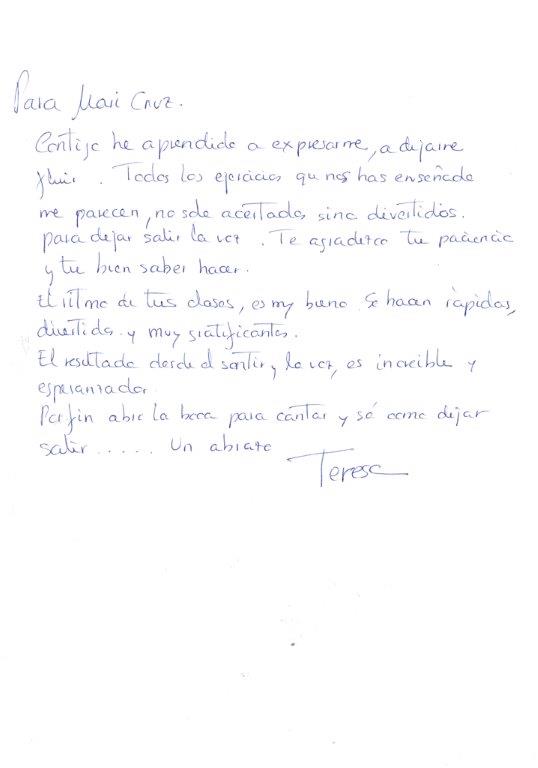 Para Mari Cruz.
Contigo he aprendido a expresarme, a dejarme
fluir. Todos los ejercicios que nos has enseñado
me parecen, no solo acertados sino divertidos.
para dejar salir la voz. Te agradezco tu paciencia
y tu bien saber hacer.
El ritmo de tus clases, es muy bueno. Se hacen rápidas,
divertidas y muy gratificantes.
El resultado desde el sentir y la voz, es increible y
esperanzador.
Por fin abro la boca para cantar y sé como dejar
salir..... Un abrazo
Teresa